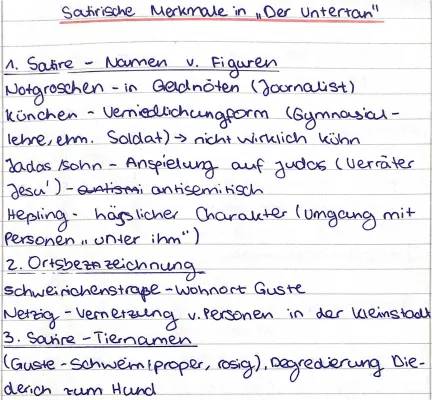 Satirische Merkmale in „Der Untertan"
1. Satire - Namen v. Figuren
Notgroschen - in Geldnöten (Journalist)
Künchen - Verniedlichungform (Gymnasial-
lehre, ehm. Soldat) → nicht wirklich kühn
Jadassohn - Anspielung auf Judas (Verräter
Jesu') - antisemitisch
Hepling - hässlicher Charakter (Umgang mit
Personen „unter ihm")
2. Ortsbezeichnung
Schweinichenstraße - Wohnort Guste
Netzig - Vernetzung v. Personen in der Kleinstadt
3. Satire - Tiernamen
(Guste - Schwein/proper, rosig), Degredierung Die-
derich zum Hund